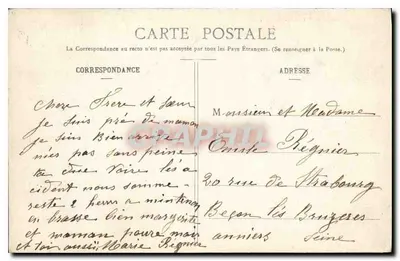 CARTE POSTALE
La Correspondance au recto n'est pas acceptée par tous les Pays Étrangers. (Se renseigner à la Poste.)
CORRESPONDANCE
ADRESSE
Chere Frere et Sœur
je suis pré de maman
je suis Bien arrivé
mes pas sans peine
ta due Voire lés a
cident nous somme
reste 2 heurs a mintnon
en brasse bien margerite
et maman poure moir
et toi aussi Marie Régnier
Monsieur et Madame
Régnier
20 rue de Strabourg
Becon lés Bruyeres
anniers Seine